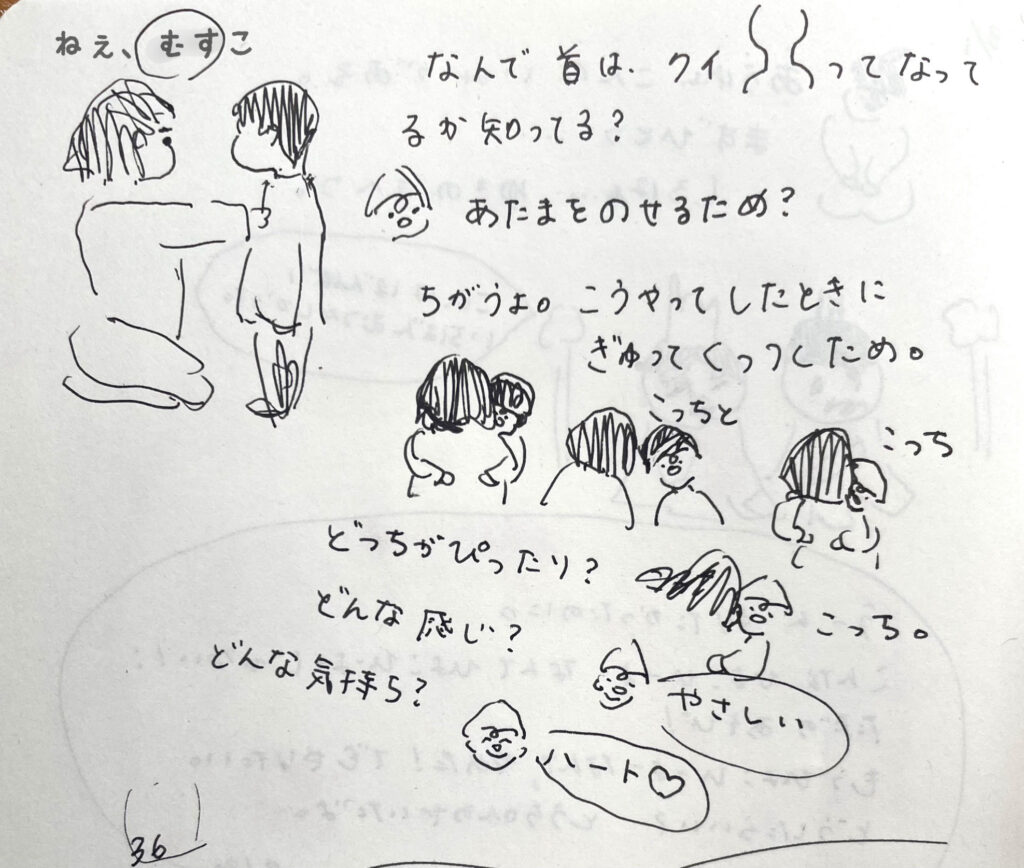 ねぇ、むすこ
なんで首は クイ ってなって
るか知ってる？
あたまをのせるため？
ちがうよ。こうやってしたときに
ぎゅってくっつくため。
こっちと
こっち
どっちがぴったり？
こっち。
どんな感じ？
やさしい
どんな気持ち？
ハート♡
36